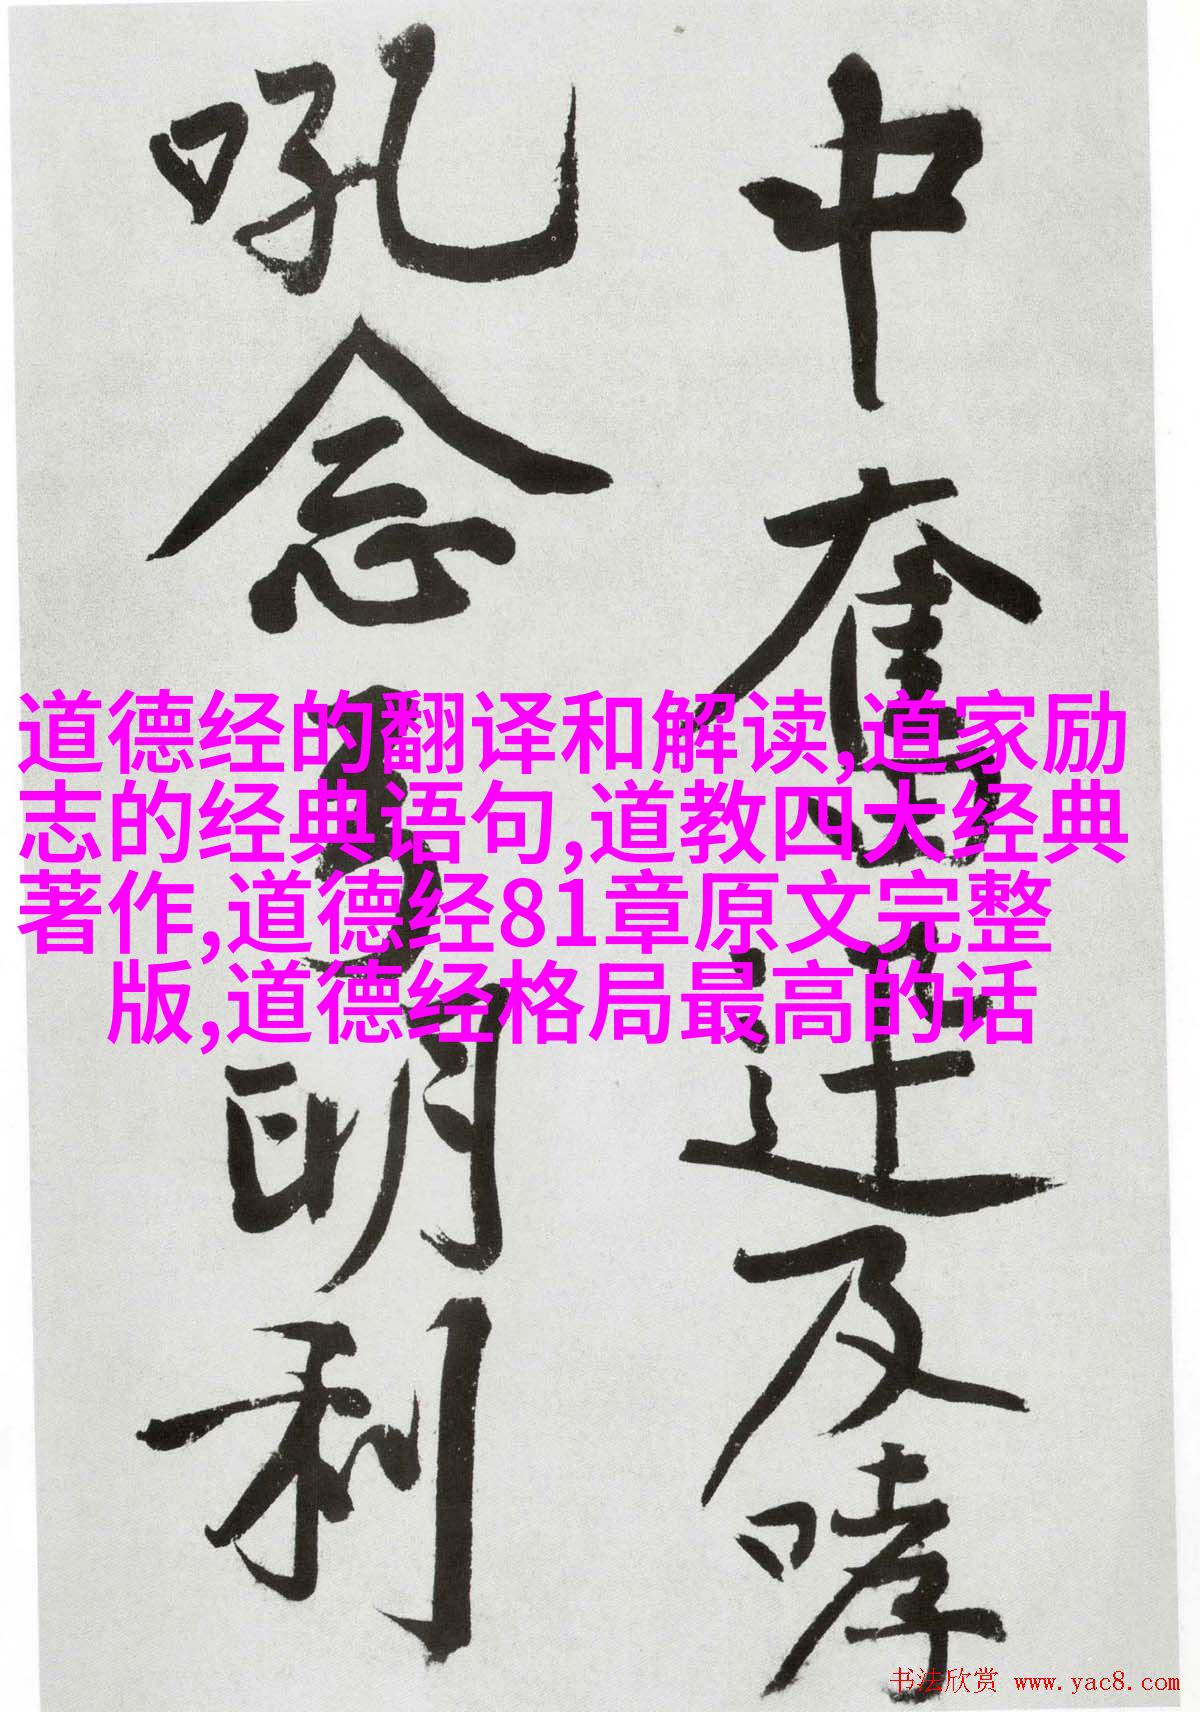 中奮迅及哮
吼念高明利
道德经的翻译和解读,道家励
志的经典语句,道教四大经典
著作,道德经81章原文完整
版,道德经格局最高的话
书法欣赏 www.yac8.com